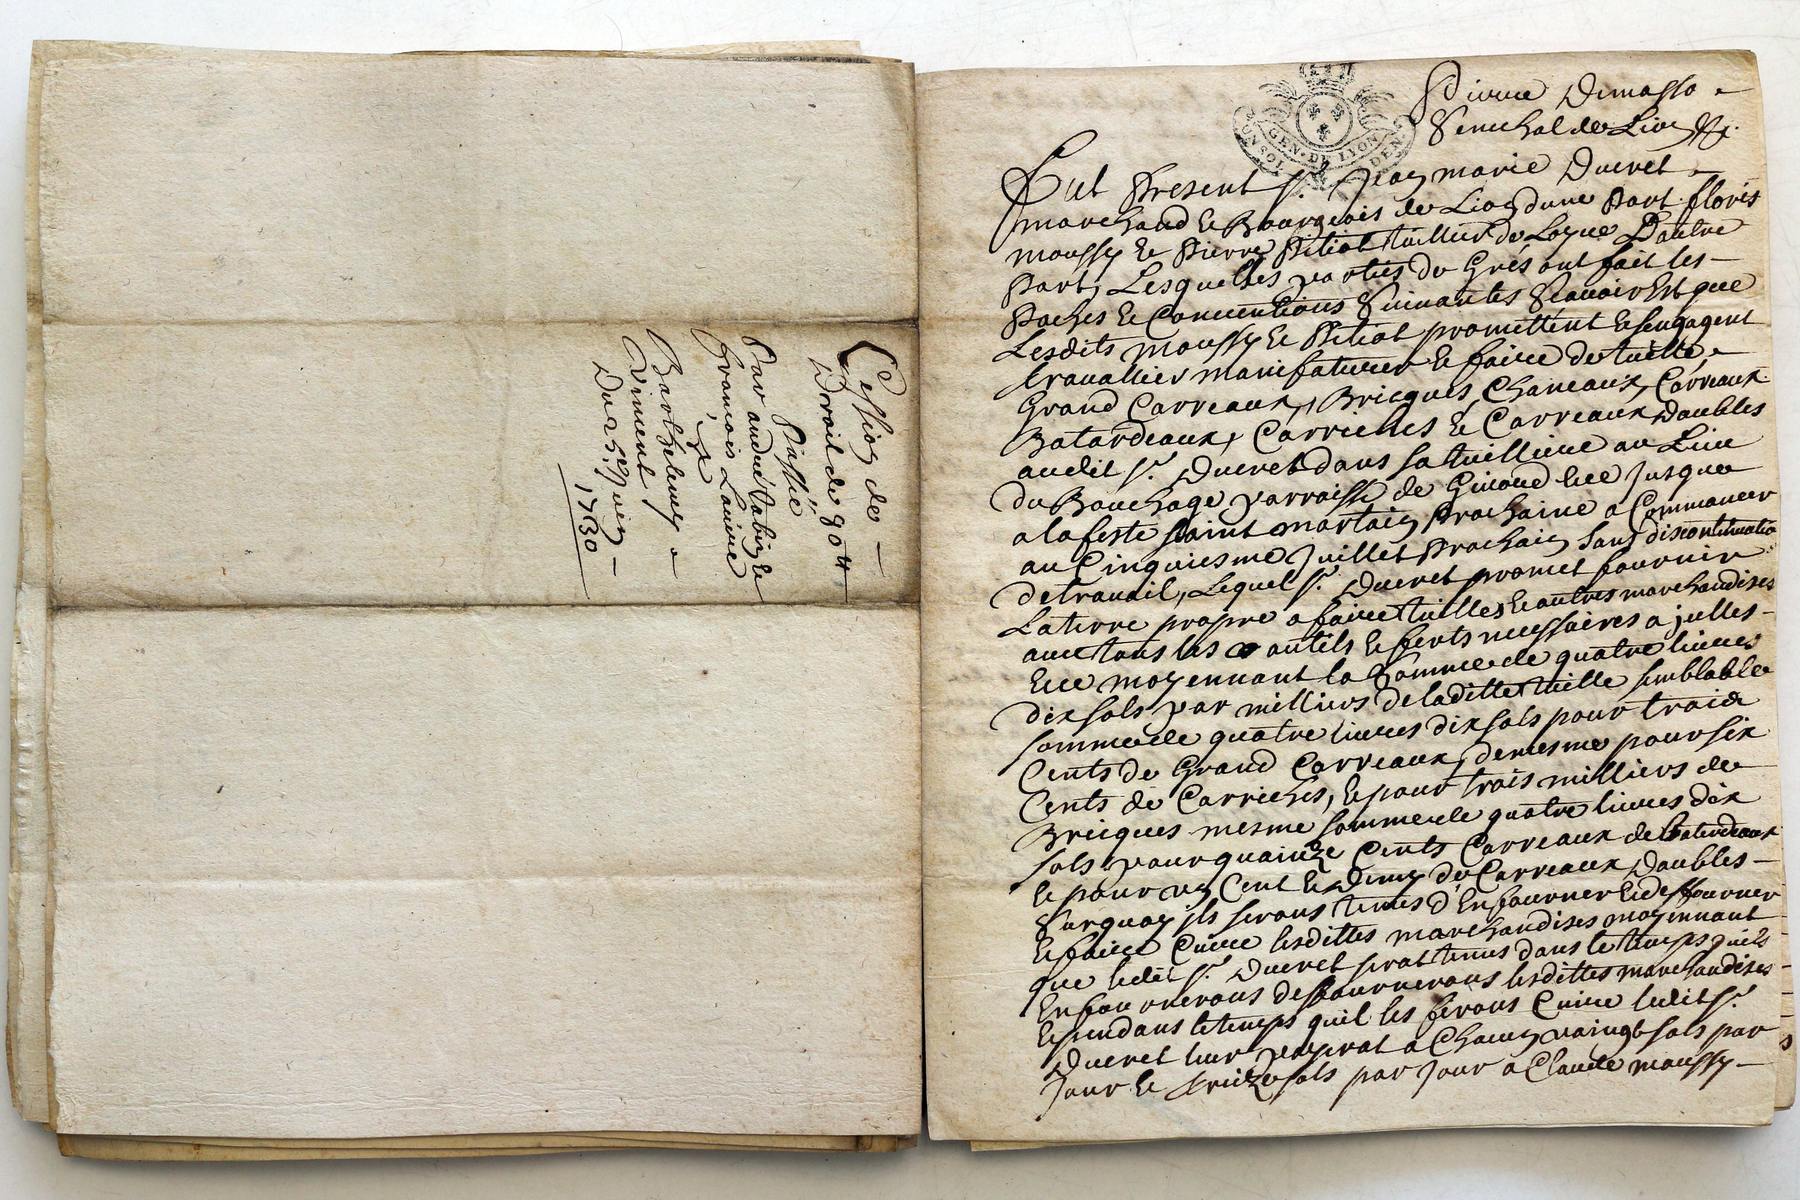 Cession de
Droit de 90 ʰ
Passée
Par andré Tabin &
françois Lauire
à
Barthelemy
Viment
Du 25.ᵉ Juin
1730
GEN. DE LYON
Pierre Dumasso
Senechal de Lion &c.
Fut Present s.ʳ Jean marie Ducret
marchand & Bourgeois de Lion dune Part floris
moussy & Pierre Pitiot tuillier de Loyue Dautre
Part, Lesquelles parties de Gres ont fait les
Paches & Conuentions Suiuantes Scauoir Est que
Lesdits moussy & Pitiot promettent & sengagent
trauallier manifaturer & faire de tuille,
Grand Carreaux, Bricques, Chaneaux, Carreaux
Batardeaux, Carriches & Carreaux Doubles
audit s.ʳ Ducret dans sa tuilliere au Lieu
du Bouchage parroisse de Ece Jusques
a la feste saint martain prochaine a Commancer
au Cinquiesme Juillet prochain sans discontinuation
de trauail, Lequel s.ʳ Ducret promet fournir
La terre propre a faire tuilles & autres marchandises
auec tous les outils & ferts necessaires a jcelles
Ece moyennant la Somme de quatre liures
dix sols par milliers de laditte tuille semblable
somme de quatre liures dix sols pour trois
Cents de Grand Carreaux, demesme pour six
Cents de Carriches, & pour trois milliers de
Bricques mesme somme de quatre liures dix
sols pour quainze Cents Carreaux de batardeaux
& pour un Cent & Dimy de Carreaux Doubles
Surquoy jls serons tenus d'Enfourner & deffourner
& faire Cuire lesdittes marchandises moyennant
que ledit s.ʳ Ducret serat tenus dans le temps quils
Enfournerons deffournerons lesdittes marchandises
& pendans le temps quil les ferons Cuire ledit s.ʳ
Ducret leur payerat a Chacun vaingt sols par
Jour & seize sols par Jour a Claude moussy